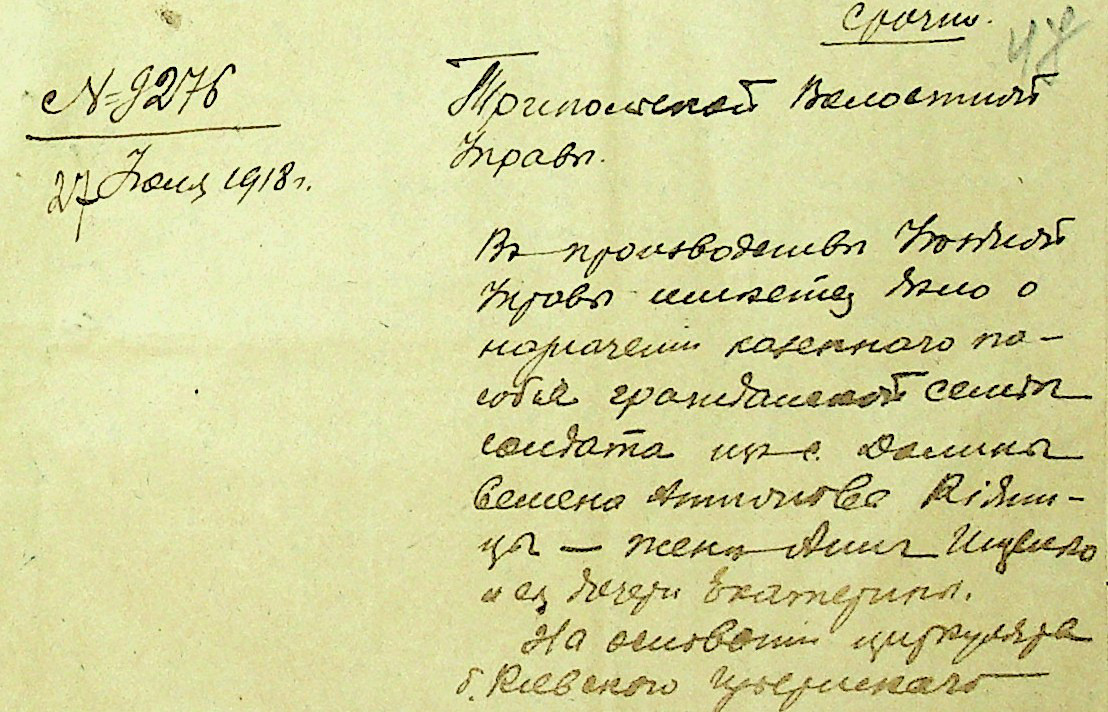 Срочно.
47
№ 9276
27 Июля 1918 г.
Трипольской Волостной
Управы.
Въ производствѣ Уѣздной
Управы имѣется дѣло о
назначеніи казеннаго по-
собія гражданской семьѣ
солдата изъ с. Долины
Семена Антонова
цы — женѣ Аннѣ Ищенко
и ея дочери Екатерины.
На основаніи циркуляра
б. Кіевскаго Губернскаго